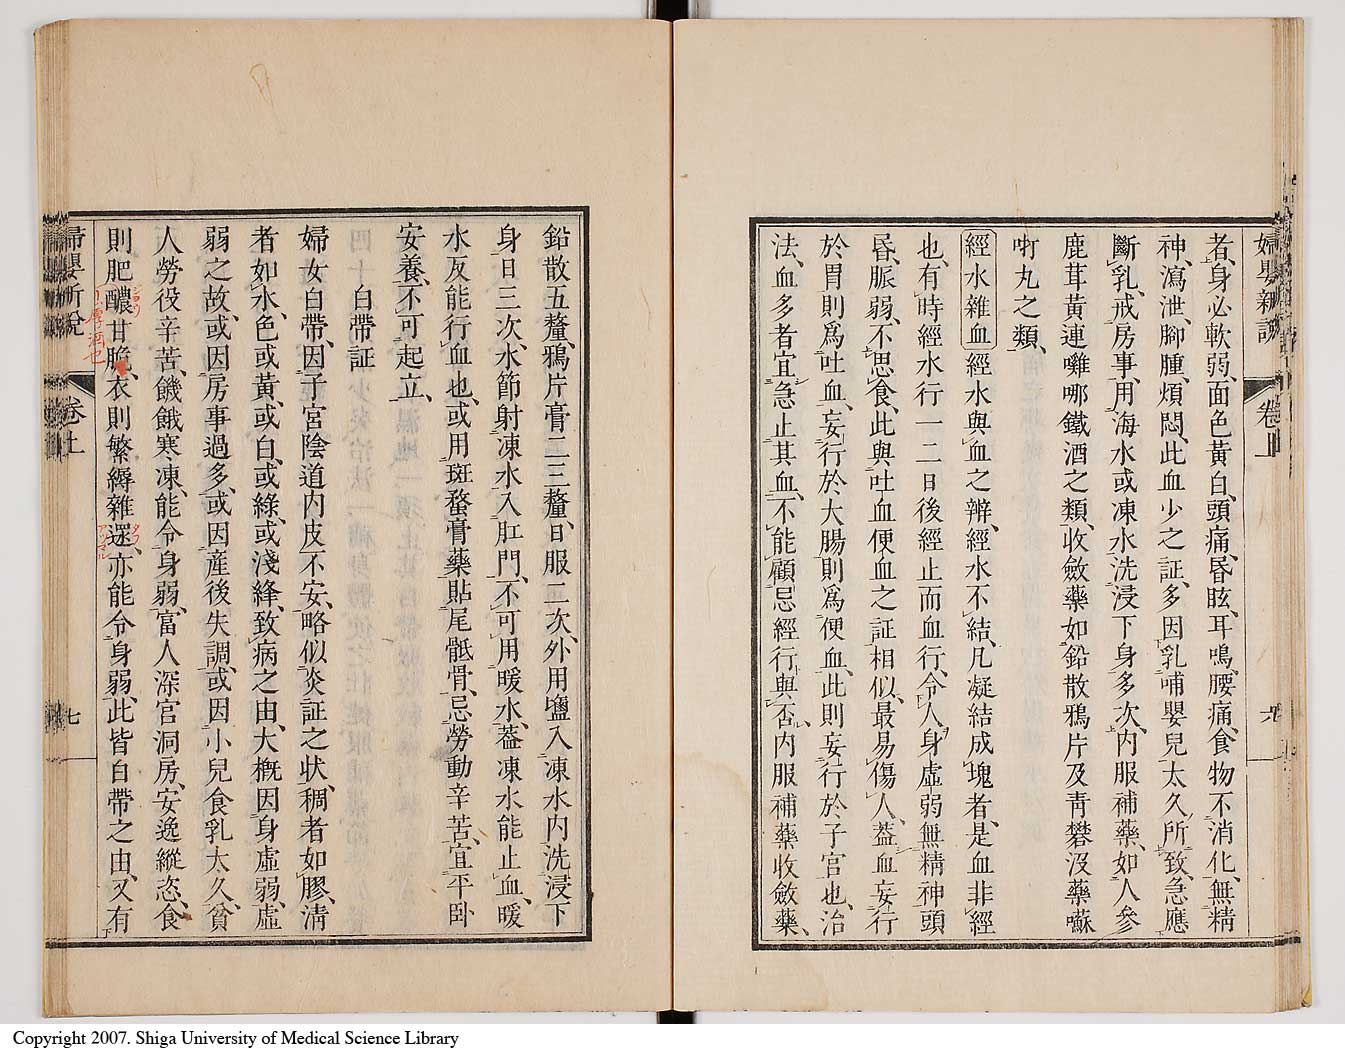 婦嬰新說
卷上
者、身必軟弱、面色黃白、頭痛、昏眩、耳鳴、腰痛、食物不消化、無精
神、瀉泄、脚腫、煩悶、此血少之証、多因乳哺嬰兒太久所致、急應
斷乳、戒房事、用海水或凍水洗浸下身多次、內服補藥、如人參
鹿茸黃連囄哪鐵酒之類、收斂藥如鉛散鴉片及靑礬沒藥囌
吖丸之類、
經水雜血 經水與血之辯、經水不結、凡凝結成塊者、是血非經
也、有時經水行一二日後經止而血行、令人身虛弱無精神頭
昏、脈弱、不思食、此與吐血便血之証相似、最易傷人、葢血妄行
於胃則爲吐血、妄行於大腸則爲便血、此則妄行於子宮也、治
法、血多者宜急止其血、不能顧忌經行與否、內服補藥收斂藥、
鉛散五釐、鴉片膏二三釐、日服二次、外用鹽入凍水內洗浸下
身日三次、水節射凍水入肛門、不可用暖水、葢凍水能止血、暖
水反能行血也、或用斑蝥膏藥貼尾骶骨、忌勞動辛苦、宜平卧
安養、不可起立、
白帶証
婦女白帶、因子宮陰道內皮不安、略似炎証之狀、稠者如膠、清
者如水、色或黃、或白、或綠、或淺絳、致病之由、大概因身虛弱、虛
弱之故、或因房事過多、或因產後失調、或因小兒食乳太久、貧
人勞役辛苦、饑餓寒凍、能令身弱、富人深宮洞房、安逸縱恣、食
則肥醲甘脆、衣則繁縟雜遝、亦能令身弱、此皆白帶之由、又有
婦嬰新說
卷上
七
Copyright 2007. Shiga University of Medical Science Library